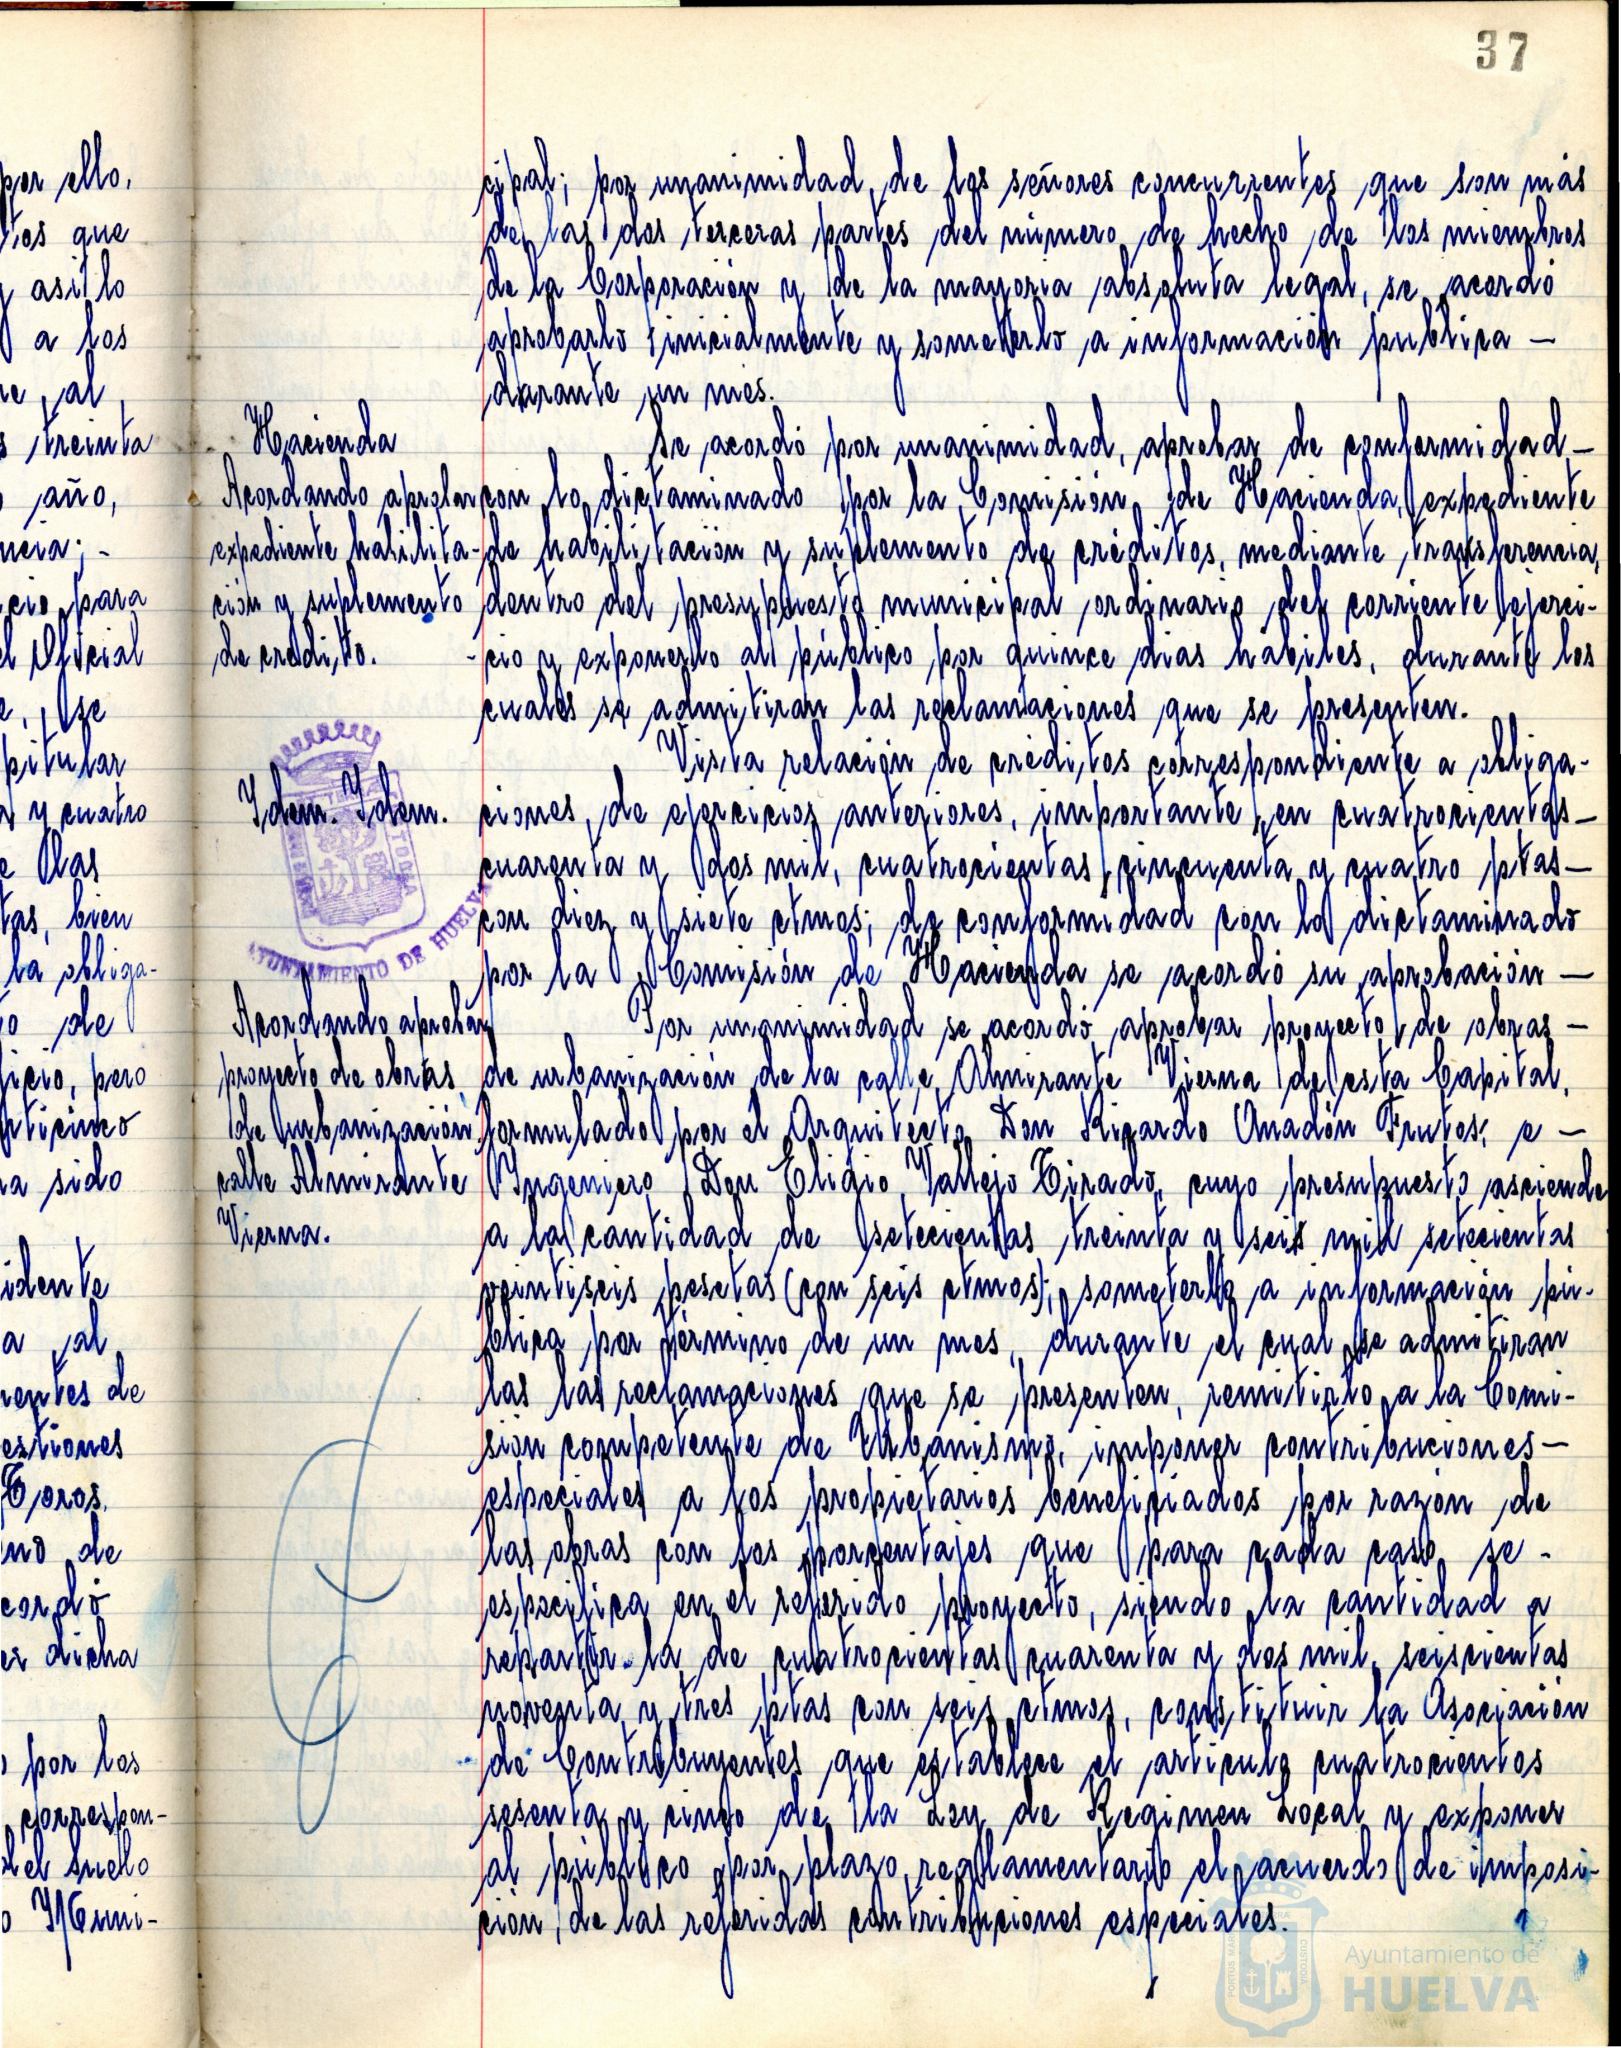 37
por ello,
tos que
y asi lo
a los
re, al
s treinta
año,
ncia; -
cio para
el Oficial
e, se
pitular
a y cuatro
e las
tas, bien
la obliga-
o de
ficio, pero
nticinco
ha sido
idente
a al
rentes de
estiones
Toros,
eno de
cordó
es dicha
por los
correspon-
del suelo
o Muni-
cipal; por unanimidad, de los señores concurrentes que son más
de las dos terceras partes del número de hecho de los miembros
de la Corporación y de la mayoria absoluta legal, se acordó
aprobarlo inicialmente y someterlo a información publica —
durante un mes.
Hacienda
Acordando aprobar
expediente habilita-
ción y suplemento
de credito.
Se acordó por unanimidad, aprobar de conformidad —
con lo dictaminado por la Comisión de Hacienda, expediente
de habilitación y suplemento de créditos, mediante transferencia,
dentro del presupuesto municipal ordinario del corriente ejerci-
cio y exponerlo al público por quince dias hábiles, durante los
cuales se admitiran las reclamaciones que se presenten.
Idem. Idem.
Vista relación de créditos correspondiente a obliga-
ciones de ejercicios anteriores, importante en cuatrocientas —
cuarenta y dos mil, cuatrocientas cincuenta y cuatro ptas —
con diez y siete ctmos; de conformidad con lo dictaminado
por la Comisión de Hacienda se acordó su aprobación —
AYUNTAMIENTO DE HUELVA
Acordando aprobar
proyecto de obras
de urbanización
calle Almirante
Vierna.
Por unanimidad se acordó aprobar proyecto de obras —
de urbanización de la calle Almirante Vierna de esta Capital,
formulado por el Arquitecto Don Ricardo Anadón Frutos, e —
Ingeniero Don Eligio Vallejo Tirado, cuyo presupuesto asciende
a la cantidad de setecientas treinta y seis mil setecientas
veintiseis pesetas (con seis ctmos); someterlo a información pú-
blica por término de un mes, durante el cual se admitiran
las las reclamaciones que se presenten, remitirlo a la Comi-
sión competente de Urbanismo, imponer contribuciones —
especiales a los propietarios beneficiados por razón de
las obras con los porcentajes que para cada caso se -
especifica en el referido proyecto, siendo la cantidad a
repartir la de cuatrocientas cuarenta y dos mil, seiscientas
noventa y tres ptas con seis ctmos, constituir la Asociación
de Contribuyentes que establece el articulo cuatrocientos
sesenta y cinco de la Ley de Regimen Local y exponer
al público por plazo reglamentario el acuerdo de imposi-
ción de las referidas contribuciones especiales.
Ayuntamiento de
HUELVA